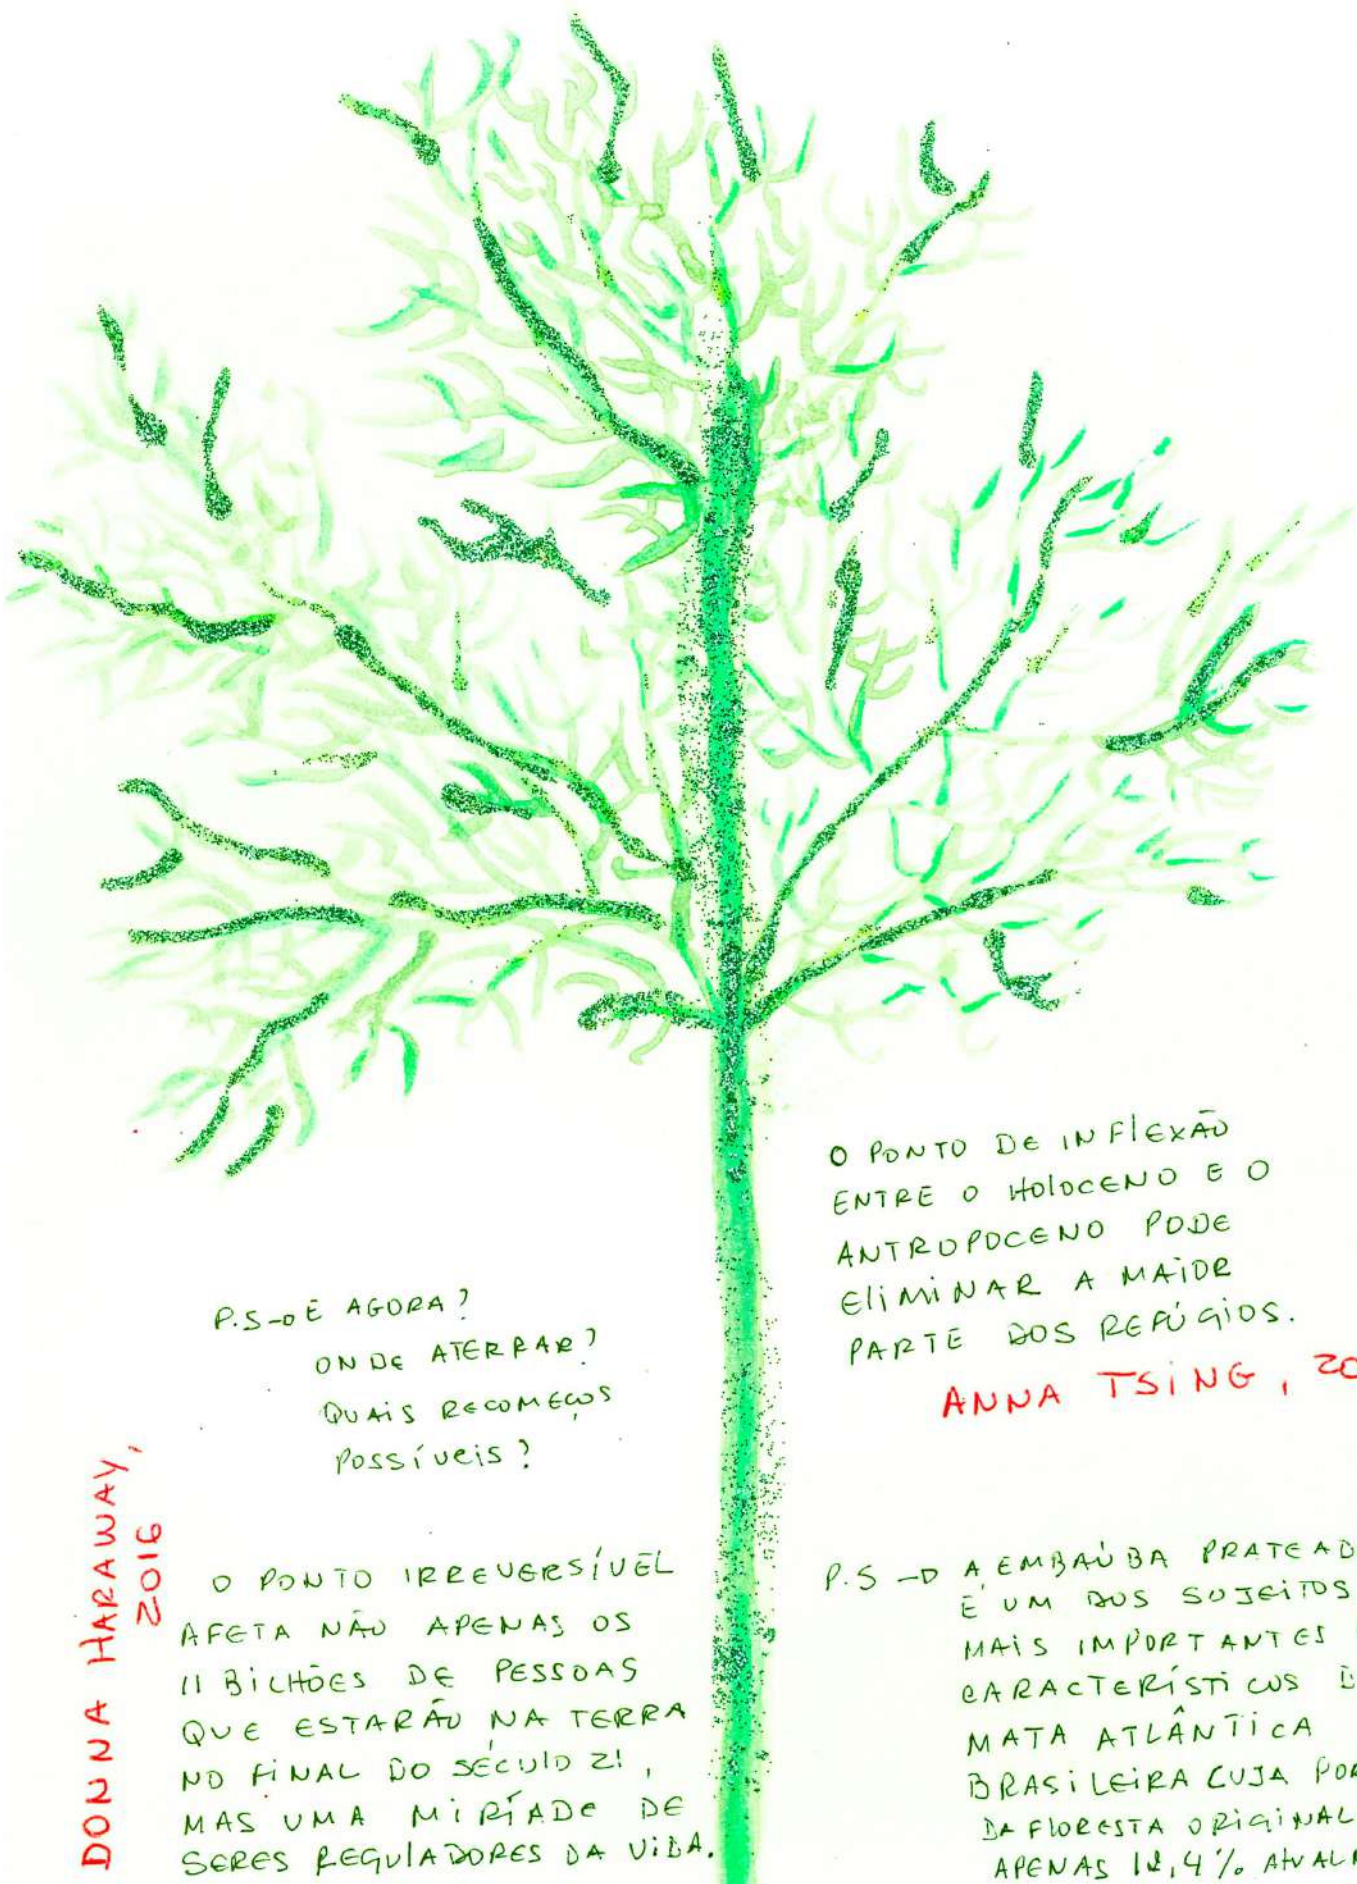 O PONTO DE INFLEXÃO
ENTRE O HOLOCENO E O
ANTROPOCENO PODE
ELIMINAR A MAIOR
PARTE DOS REFÚGIOS.
ANNA TSING, 20
P.S → E AGORA?
ONDE ATERRAR?
QUAIS RECOMEÇOS
POSSÍVEIS?
DONNA HARAWAY,
2016
O PONTO IRREVERSÍVEL
AFETA NÃO APENAS OS
11 BILHÕES DE PESSOAS
QUE ESTARÃO NA TERRA
NO FINAL DO SÉCULO 21,
MAS UMA MIRÍADE DE
SERES REGULADORES DA VIDA.
P.S → A EMBAÚBA PRATEAD
É UM DOS SUJEITOS
MAIS IMPORTANTES
CARACTERÍSTICOS
MATA ATLÂNTICA
BRASILEIRA CUJA POR
DA FLORESTA ORIGINAL
APENAS 12,4%